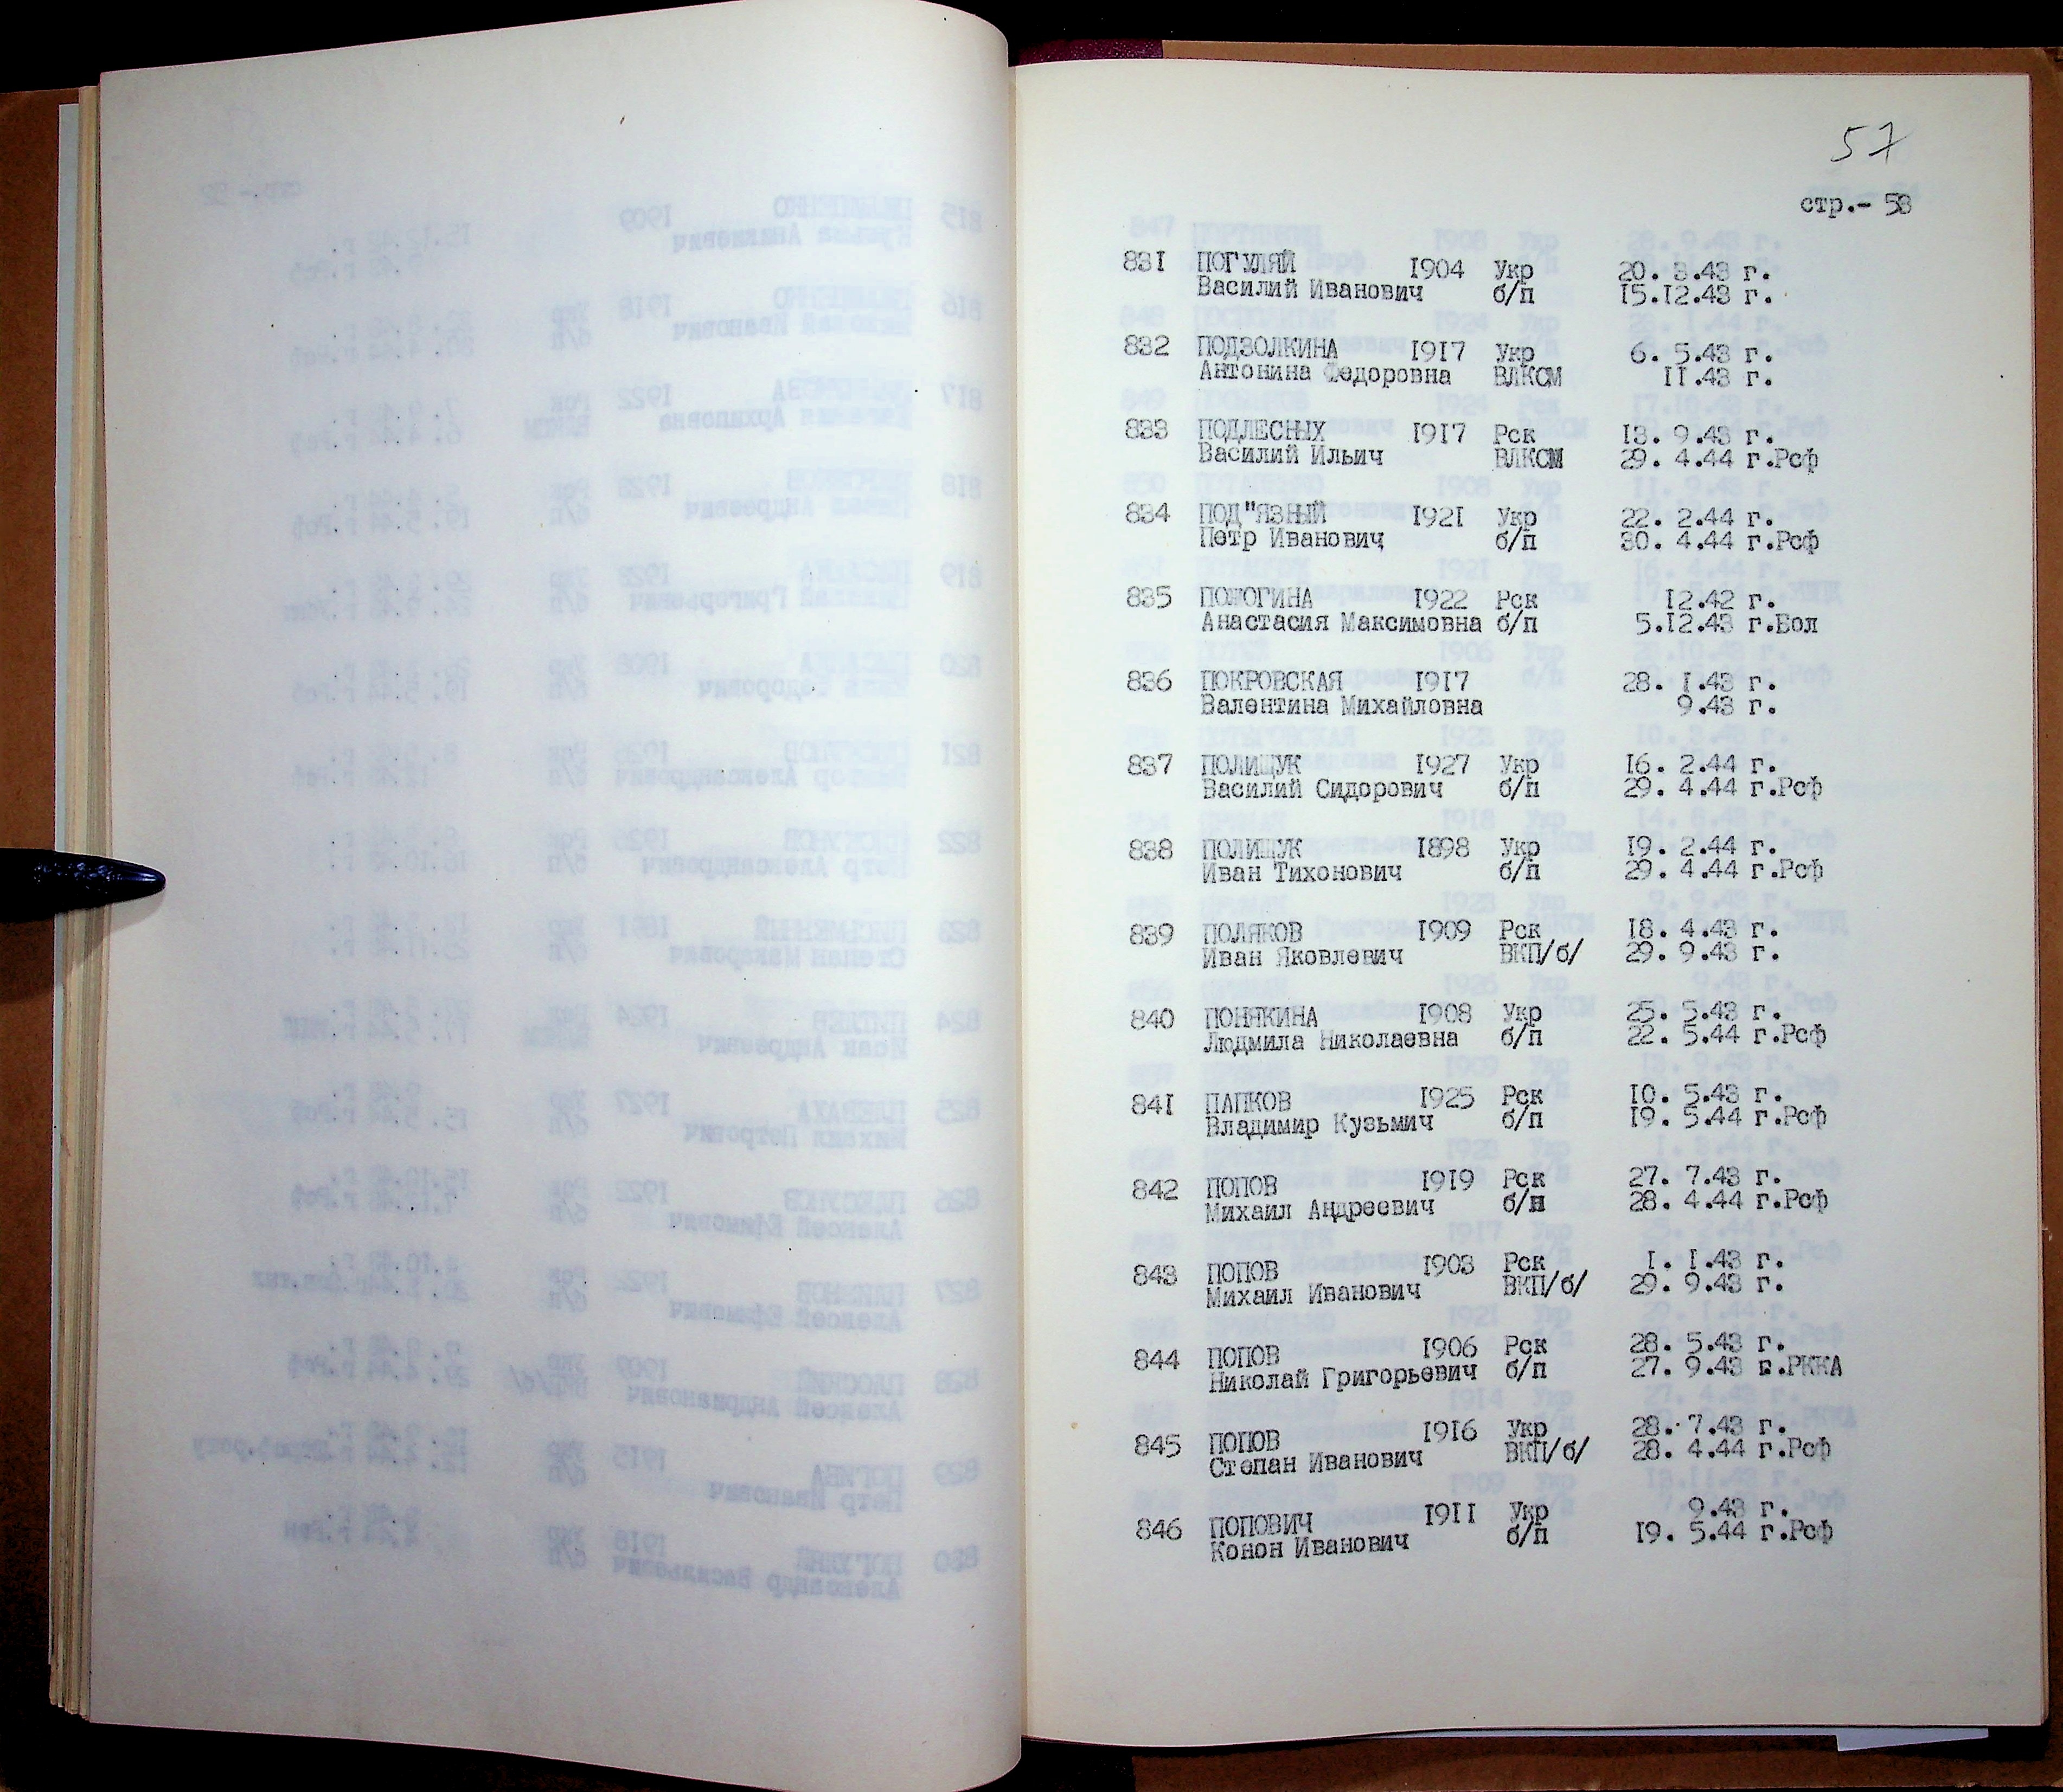 57
стр.- 58
831 ПОГУЛЯЙ 1904 Укр 20. 3.43 г.
Василий Иванович б/п 15.12.43 г.
832 ПОДЗОЛКИНА 1917 Укр 6. 5.43 г.
Антонина Федоровна ВЛКСМ 11.43 г.
833 ПОДЛЕСНЫХ 1917 Рск 13. 9.43 г.
Василий Ильич ВЛКСМ 29. 4.44 г.Рсф
834 ПОД"ЯЗНЫЙ 1921 Укр 22. 2.44 г.
Петр Иванович б/п 30. 4.44 г.Рсф
835 ПОЖОГИНА 1922 Рск 12.42 г.
Анастасия Максимовна б/п 5.12.43 г.Бол
836 ПОКРОВСКАЯ 1917 28. 1.43 г.
Валентина Михайловна 9.43 г.
837 ПОЛИЩУК 1927 Укр 16. 2.44 г.
Василий Сидорович б/п 29. 4.44 г.Рсф
838 ПОЛИЩУК 1898 Укр 19. 2.44 г.
Иван Тихонович б/п 29. 4.44 г.Рсф
839 ПОЛЯКОВ 1909 Рск 18. 4.43 г.
Иван Яковлевич ВКП/б/ 29. 9.43 г.
840 ПОНЯКИНА 1908 Укр 25. 5.43 г.
Людмила Николаевна б/п 22. 5.44 г.Рсф
841 ПАПКОВ 1925 Рск 10. 5.43 г.
Владимир Кузьмич б/п 19. 5.44 г.Рсф
842 ПОПОВ 1919 Рск 27. 7.43 г.
Михаил Андреевич б/п 28. 4.44 г.Рсф
843 ПОПОВ 1903 Рск 1. 1.43 г.
Михаил Иванович ВКП/б/ 29. 9.43 г.
844 ПОПОВ 1906 Рск 28. 5.43 г.
Николай Григорьевич б/п 27. 9.43 г.РККА
845 ПОПОВ 1916 Укр 28. 7.43 г.
Степан Иванович ВКП/б/ 28. 4.44 г.Рсф
846 ПОПОВИЧ 1911 Укр 9.43 г.
Конон Иванович б/п 19. 5.44 г.Рсф